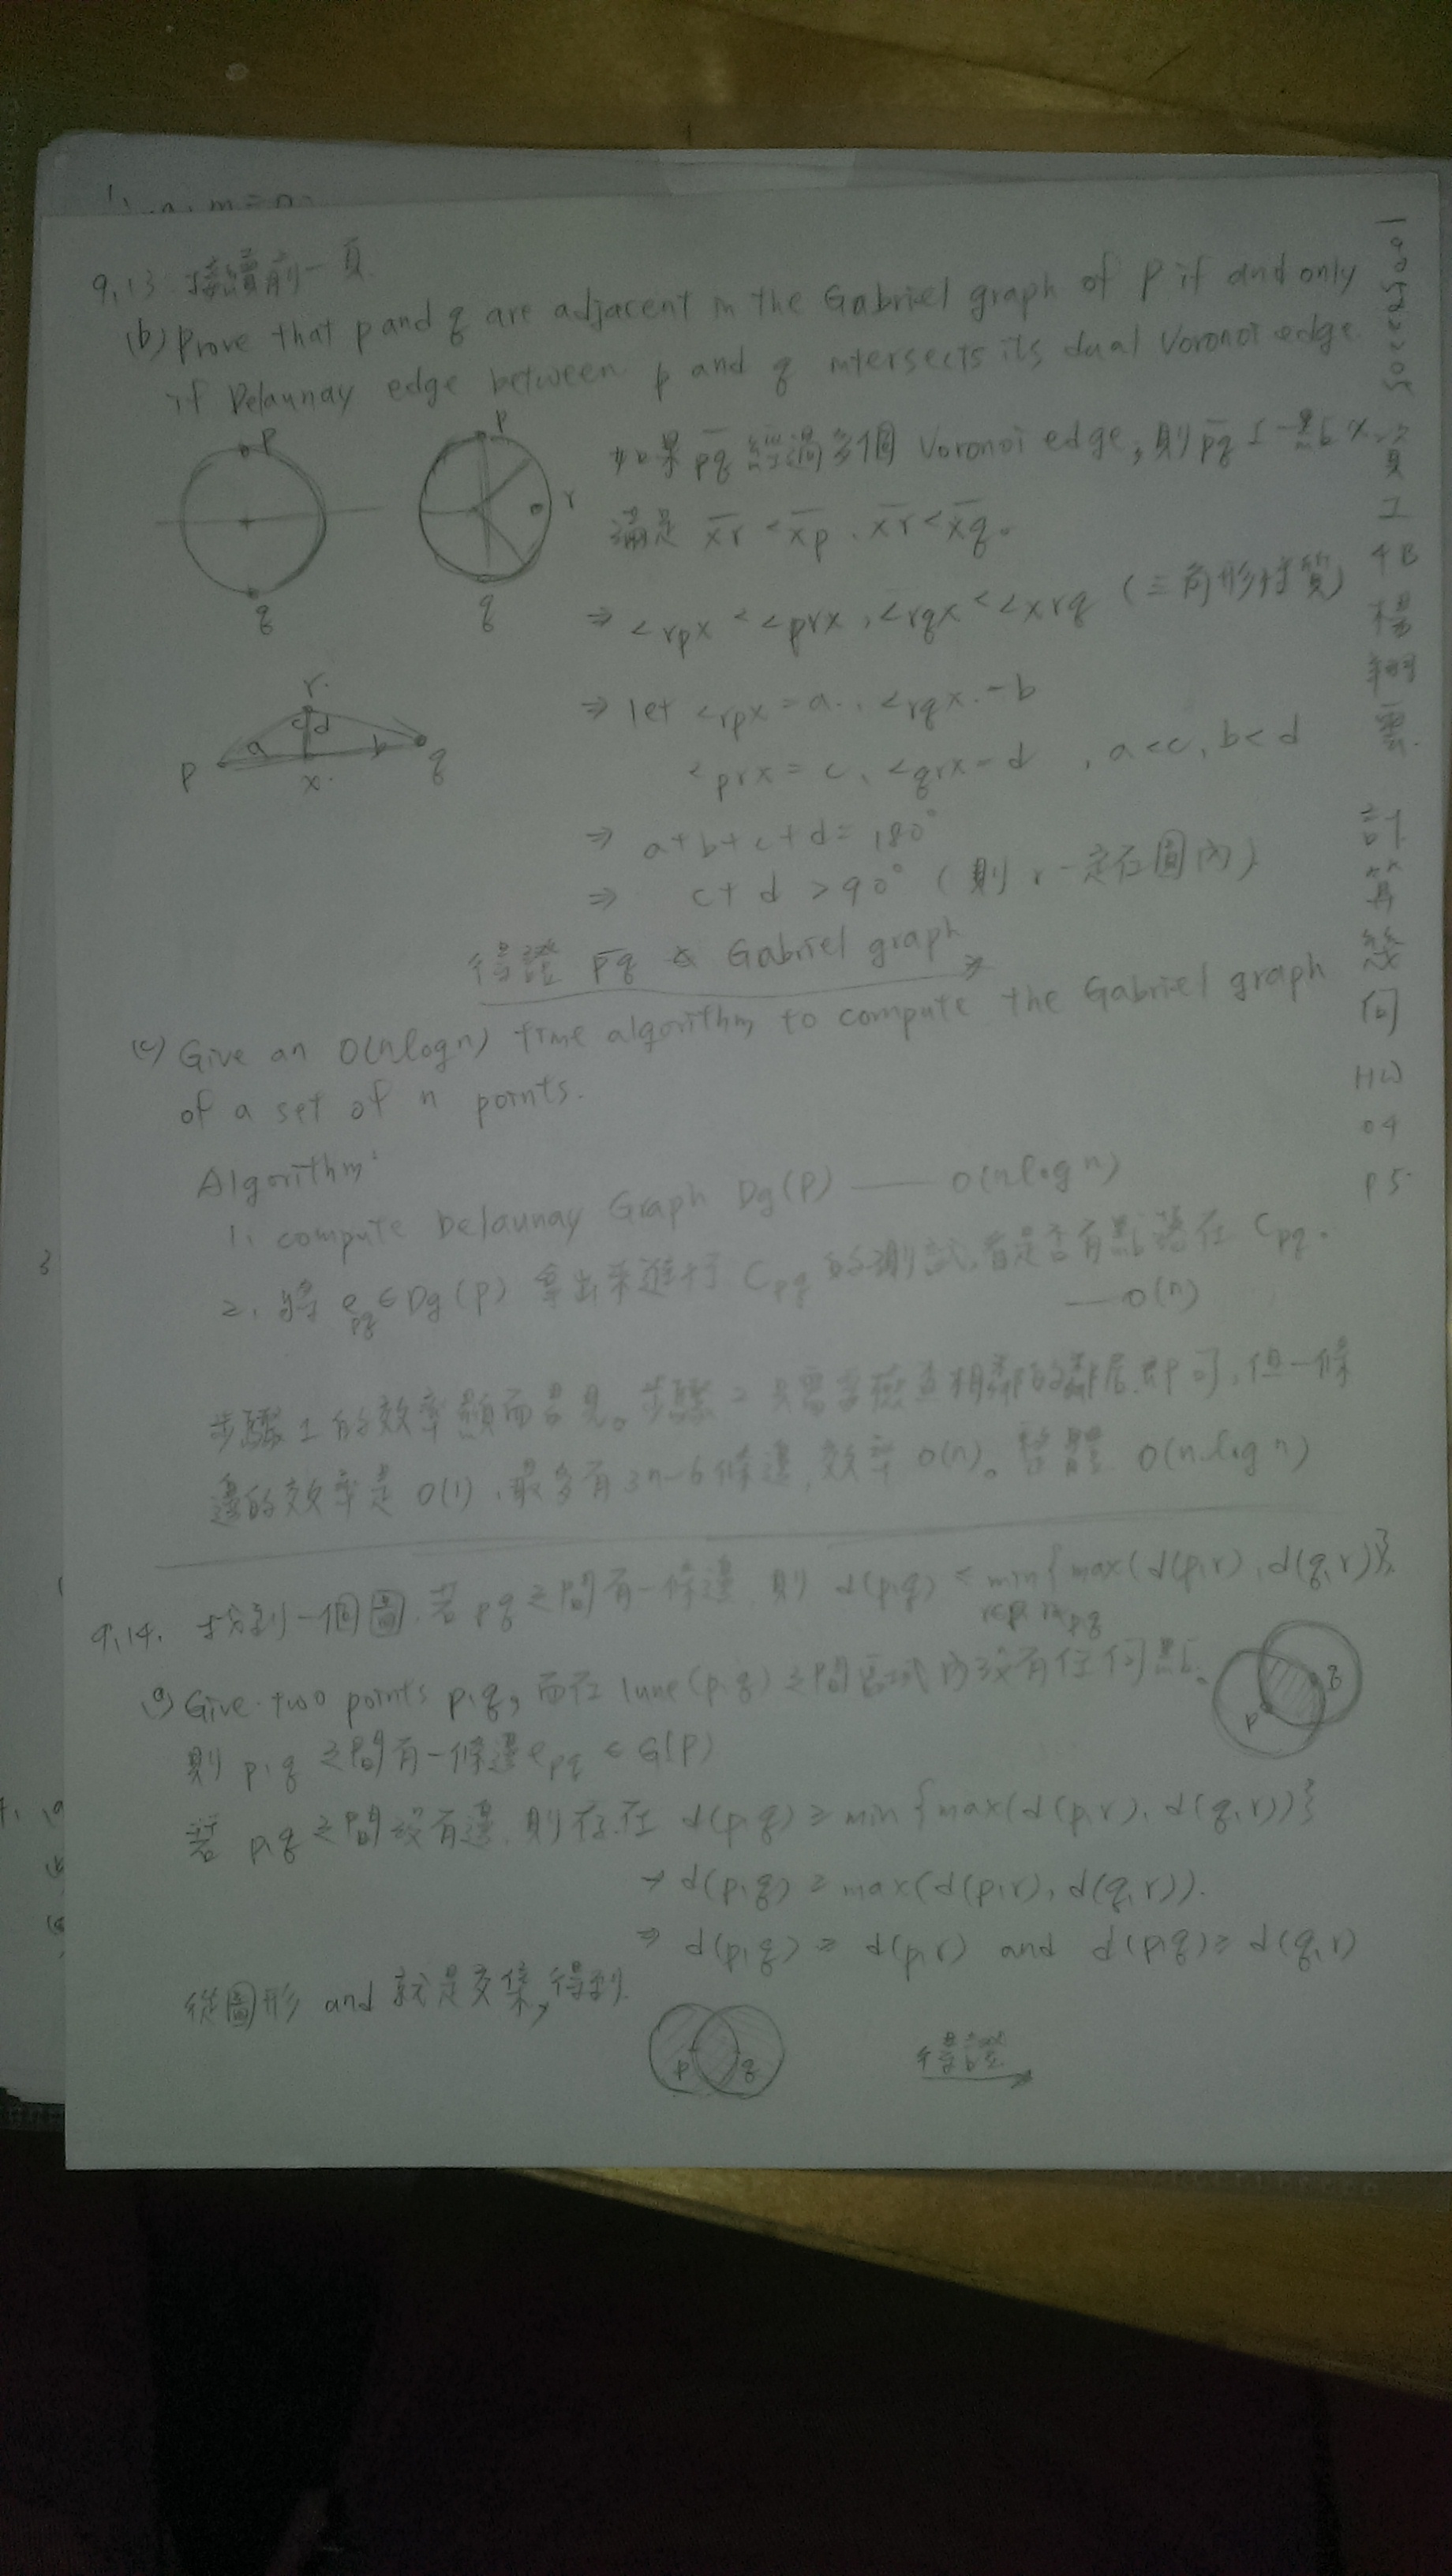 9.13 接續前一頁
(b) Prove that p and q are adjacent in the Gabriel graph of P if and only
if Delaunay edge between p and q intersects its dual Voronoi edge.
p
q
p
r
q
如果 pq 經過多個 Voronoi edge, 則 pq 上一點 x
滿足 xr < xp, xr < xq。
⇒ ∠rpx < ∠prx, ∠rqx < ∠xrq (三角形性質)
r
c d
a b
p x q
⇒ let ∠rpx = a, ∠rqx = b
∠prx = c, ∠qrx = d, a<c, b<d
⇒ a+b+c+d = 180°
⇒ c+d > 90° (則 r 一定在圓內)
得證 pq ∉ Gabriel graph
(c) Give an O(nlogn) time algorithm to compute the Gabriel graph
of a set of n points.
Algorithm:
1. compute Delaunay Graph Dg(P) —— O(nlogn)
2. 將 e_pq ∈ Dg(P) 拿出來進行 C_pq 的測試, 看是否有點落在 C_pq.
—O(n)
步驟 1 的效率顯而易見。步驟 2 只需要檢查相鄰的鄰居即可, 但一條
邊的效率是 O(1), 最多有 3n-6 條邊, 效率 O(n)。整體 O(n log n)
9.14. 找到一個圖, 若 pq 之間有一條邊, 則 d(p,q) ≤ min{max(d(p,r), d(q,r))}
r∈P, r≠p,q
(a) Give two points p,q, 而在 lune(p,q) 之間區域內沒有任何點,
則 p,q 之間有一條邊 e_pq ∈ G(P)
p
q
若 p,q 之間沒有邊, 則存在 d(p,q) ≥ min{max(d(p,r), d(q,r))}
→ d(p,q) ≥ max(d(p,r), d(q,r)).
⇒ d(p,q) ≥ d(p,r) and d(p,q) ≥ d(q,r)
從圖形 and 就是交集, 得到
p q
得證
資工4B
計算幾何 HW 04 P5